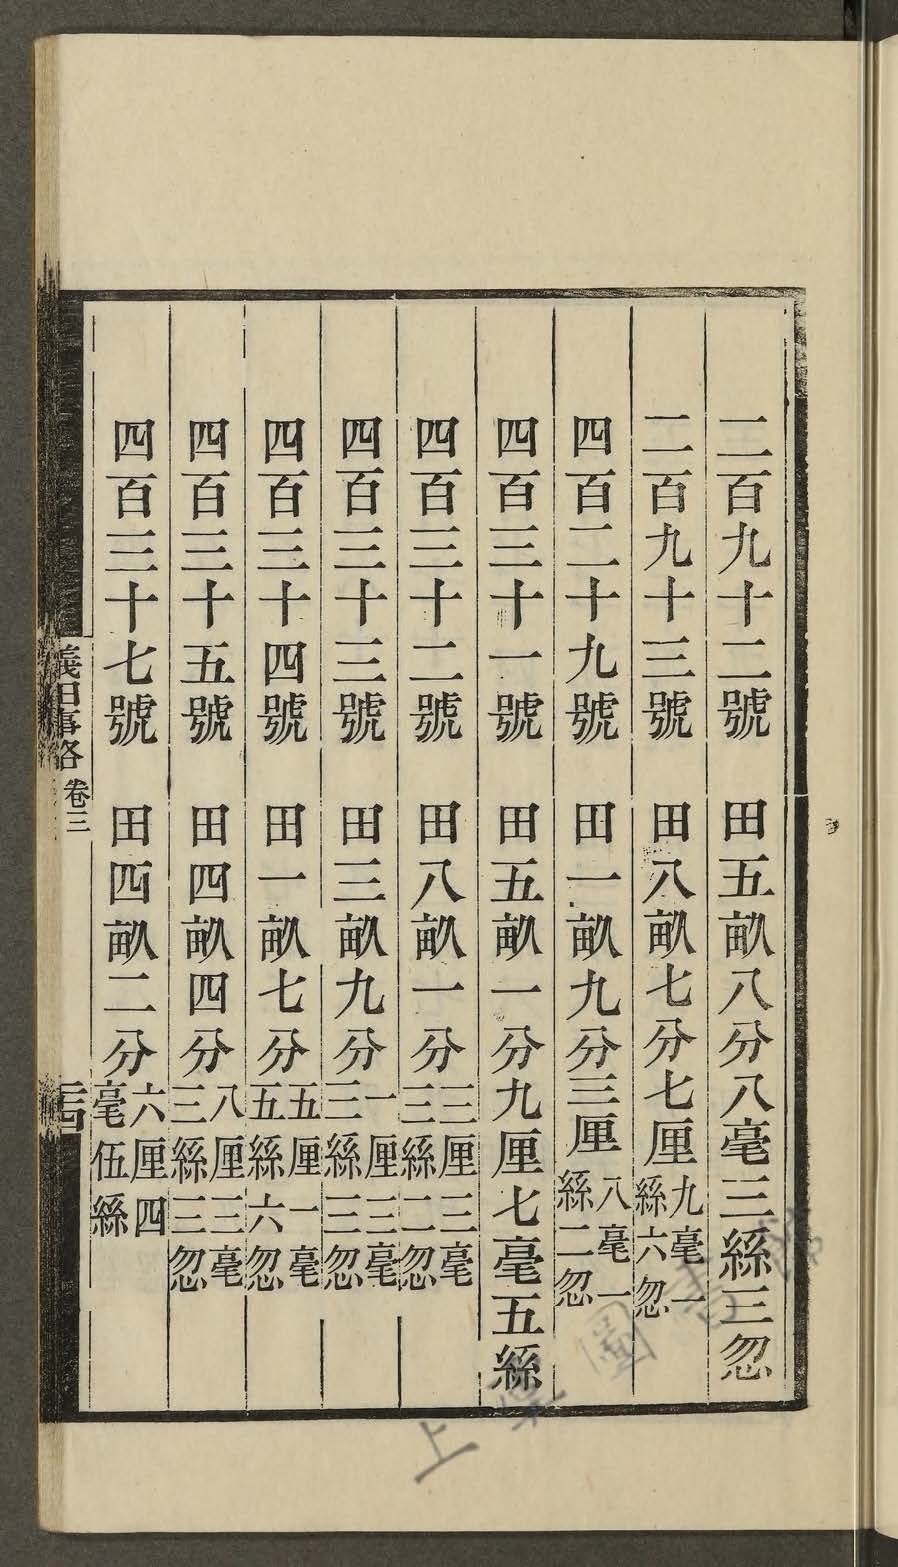 二百九十二號　田五畝八分八毫三絲三忽
二百九十三號　田八畝七分七厘九毫一絲六忽
四百二十九號　田一畝九分三厘八毫一絲二忽
四百三十一號　田五畝一分九厘七毫五絲
四百三十二號　田八畝一分三厘三毫三絲二忽
四百三十三號　田三畝九分一厘三毫三絲三忽
四百三十四號　田一畝七分五厘一毫五絲六忽
四百三十五號　田四畝四分八厘三毫三絲三忽
四百三十七號　田四畝二分六厘四毫伍絲
義田事略　卷三
上海圖書館